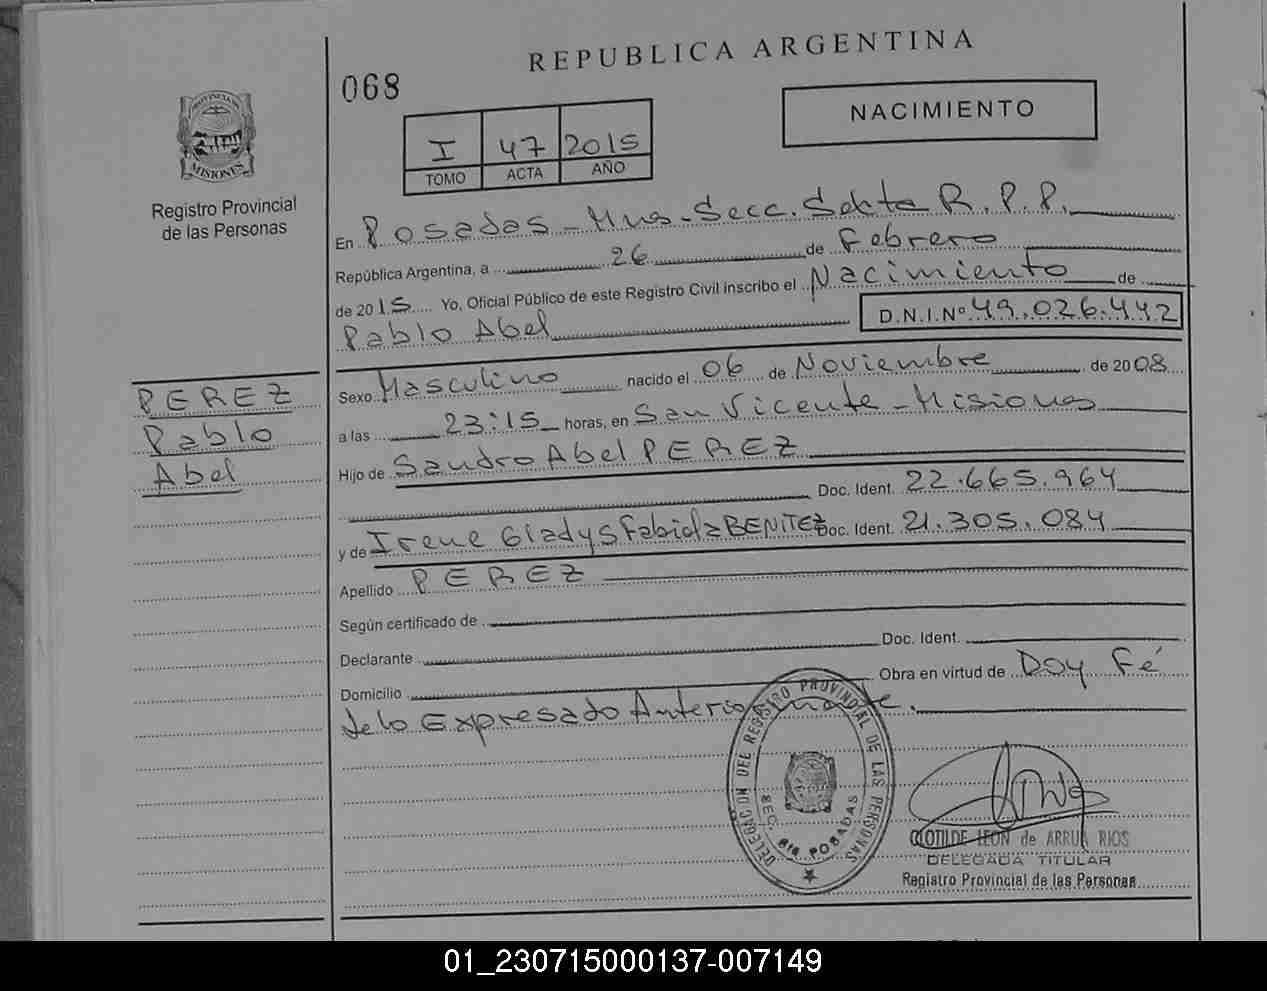 REPUBLICA ARGENTINA
068
NACIMIENTO
I 47 2015
TOMO ACTA AÑO
PROVINCIA DE
MISIONES
Registro Provincial
de las Personas
En Posadas - Mnes - Secc. Sexta R.P.P.
República Argentina, a 26 de Febrero
de 2015 Yo, Oficial Público de este Registro Civil inscribo el Nacimiento de
Pablo Abel D.N.I.Nº 49.026.442
PEREZ
Pablo
Abel
Sexo Masculino nacido el 06 de Noviembre de 2008
a las 23:15 horas, en San Vicente - Misiones
Hijo de Sandro Abel PEREZ
Doc. Ident. 22.665.964
y de Irene Gladys Fabiola BENITEZ Doc. Ident. 21.305.084
Apellido PEREZ
Según certificado de
Declarante Doc. Ident.
Domicilio Obra en virtud de Doy Fé
de lo Expresado Anteriormente.
DELEGACION DEL REGISTRO PROVINCIAL DE LAS PERSONAS
SEC. 6ta POSADAS
CLOTILDE LEON de ARRUA RIOS
DELEGADA TITULAR
Registro Provincial de las Personas
01_230715000137-007149